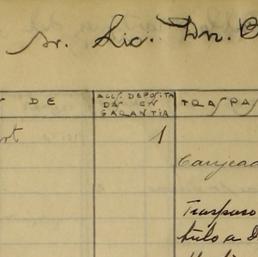 Sr. Lic. Dn.
DE
ACC. DEPOSITA
DAS EN
GARANTIA
TRASPAS
1
Canjead
Traspaso
tulo a